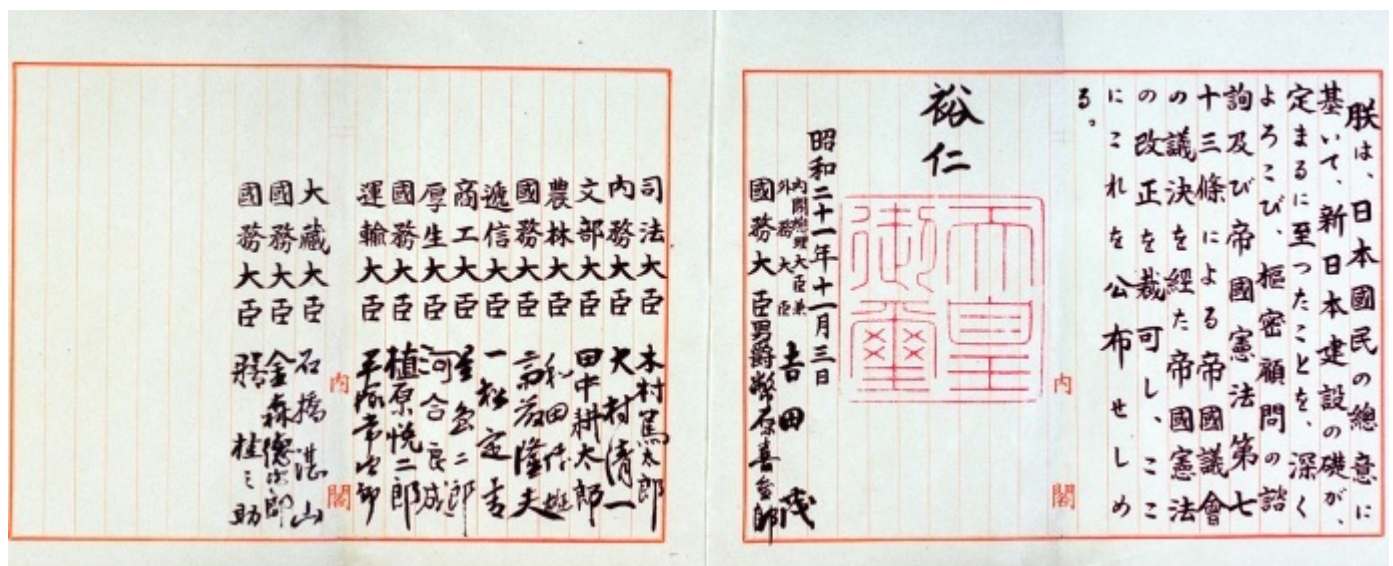 朕は、日本國民の總意に
基いて、新日本建設の礎が、
定まるに至つたことを、深く
よろこび、樞密顧問の諮
詢及び帝國憲法第七
十三條による帝國議會
の議決を經た帝國憲法
の改正を裁可し、ここ
にこれを公布せしめ
る。
裕仁
天皇
御璽
昭和二十一年十一月三日
内閣總理大臣兼
外務大臣 吉田茂
國務大臣 男爵 幣原喜重郎
司法大臣 木村篤太郎
内務大臣 大村清一
文部大臣 田中耕太郎
農林大臣 和田博雄
國務大臣 斎藤隆夫
遞信大臣 一松定吉
商工大臣 星島二郎
厚生大臣 河合良成
國務大臣 植原悦二郎
運輸大臣 平塚常次郎
大藏大臣 石橋湛山
國務大臣 金森德次郎
國務大臣 膳桂之助
内閣
内閣